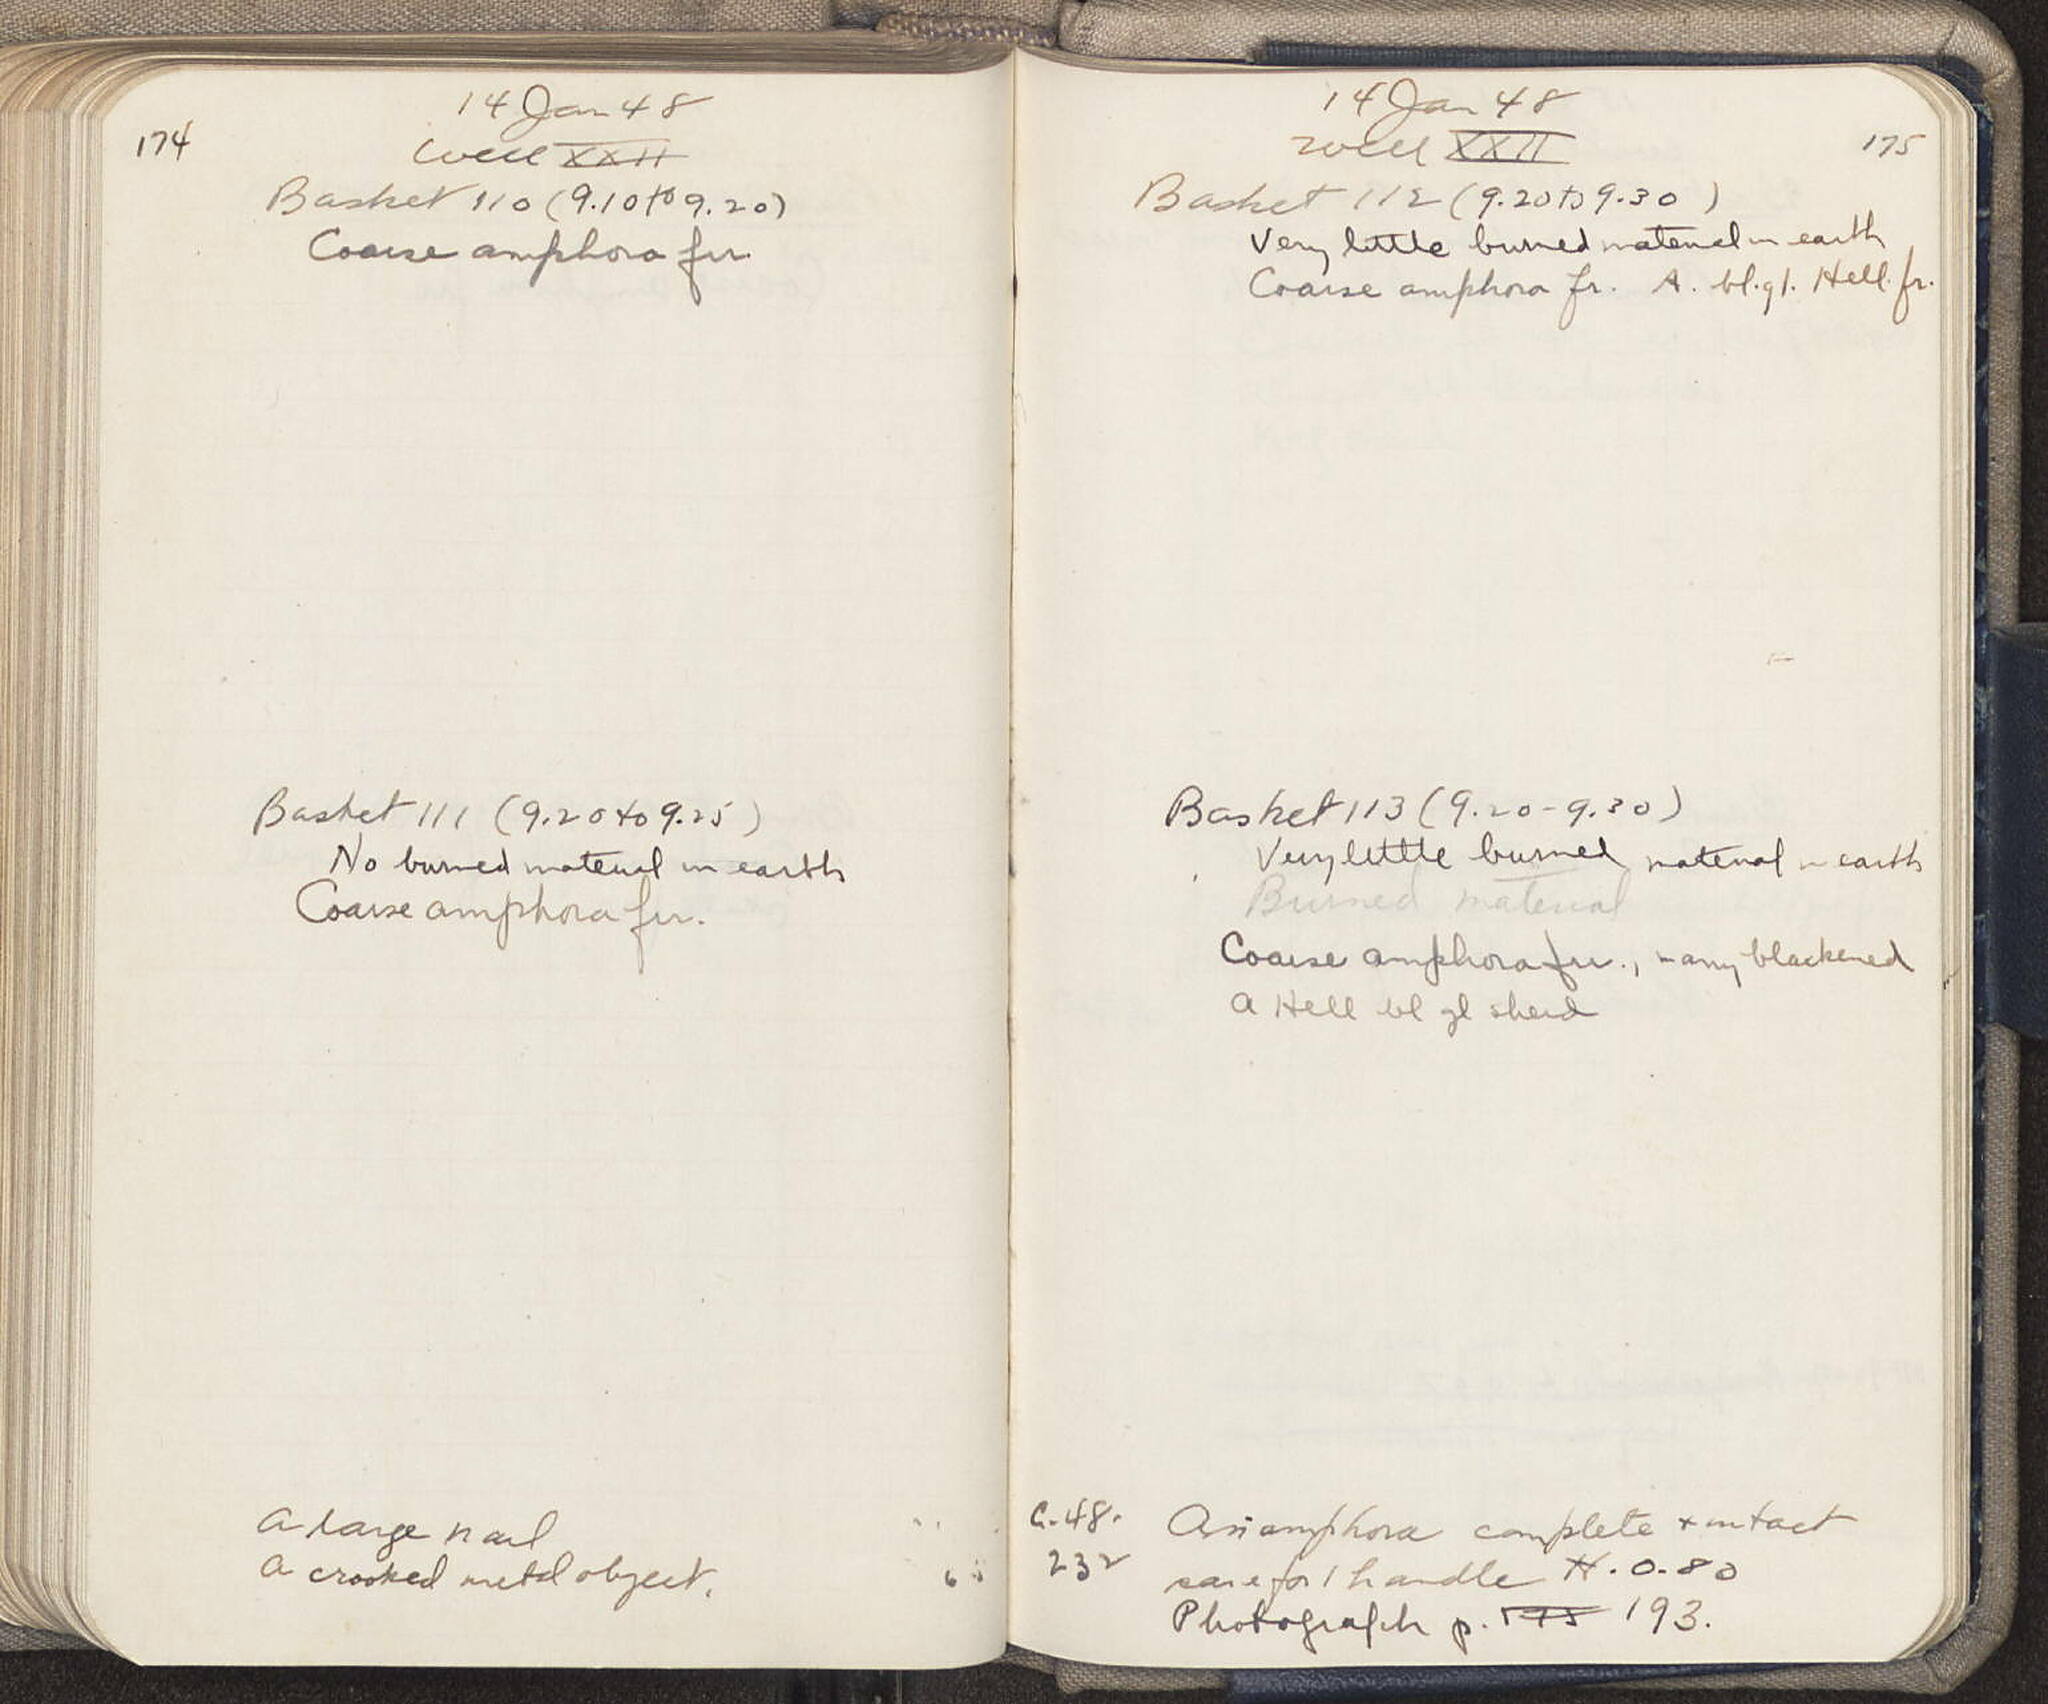 174
14 Jan 48
Well XXII
Basket 110 (9.10 to 9.20)
Coarse amphora frr.
Basket 111 (9.20 to 9.25)
No burned material in earth
Coarse amphora frr.
A large nail
A crooked metal object.
175
14 Jan 48
Well XXII
Basket 112 (9.20 to 9.30)
Very little burned material in earth
Coarse amphora fr. A. bl. gl. Hell. fr.
Basket 113 (9.20 - 9.30)
Very little burned material in earth
Burned material
Coarse amphora frr., many blackened
A Hell bl gl sherd
C.48. amphora complete + intact
232 save for 1 handle H. 0.80
Photograph p. 175 193.